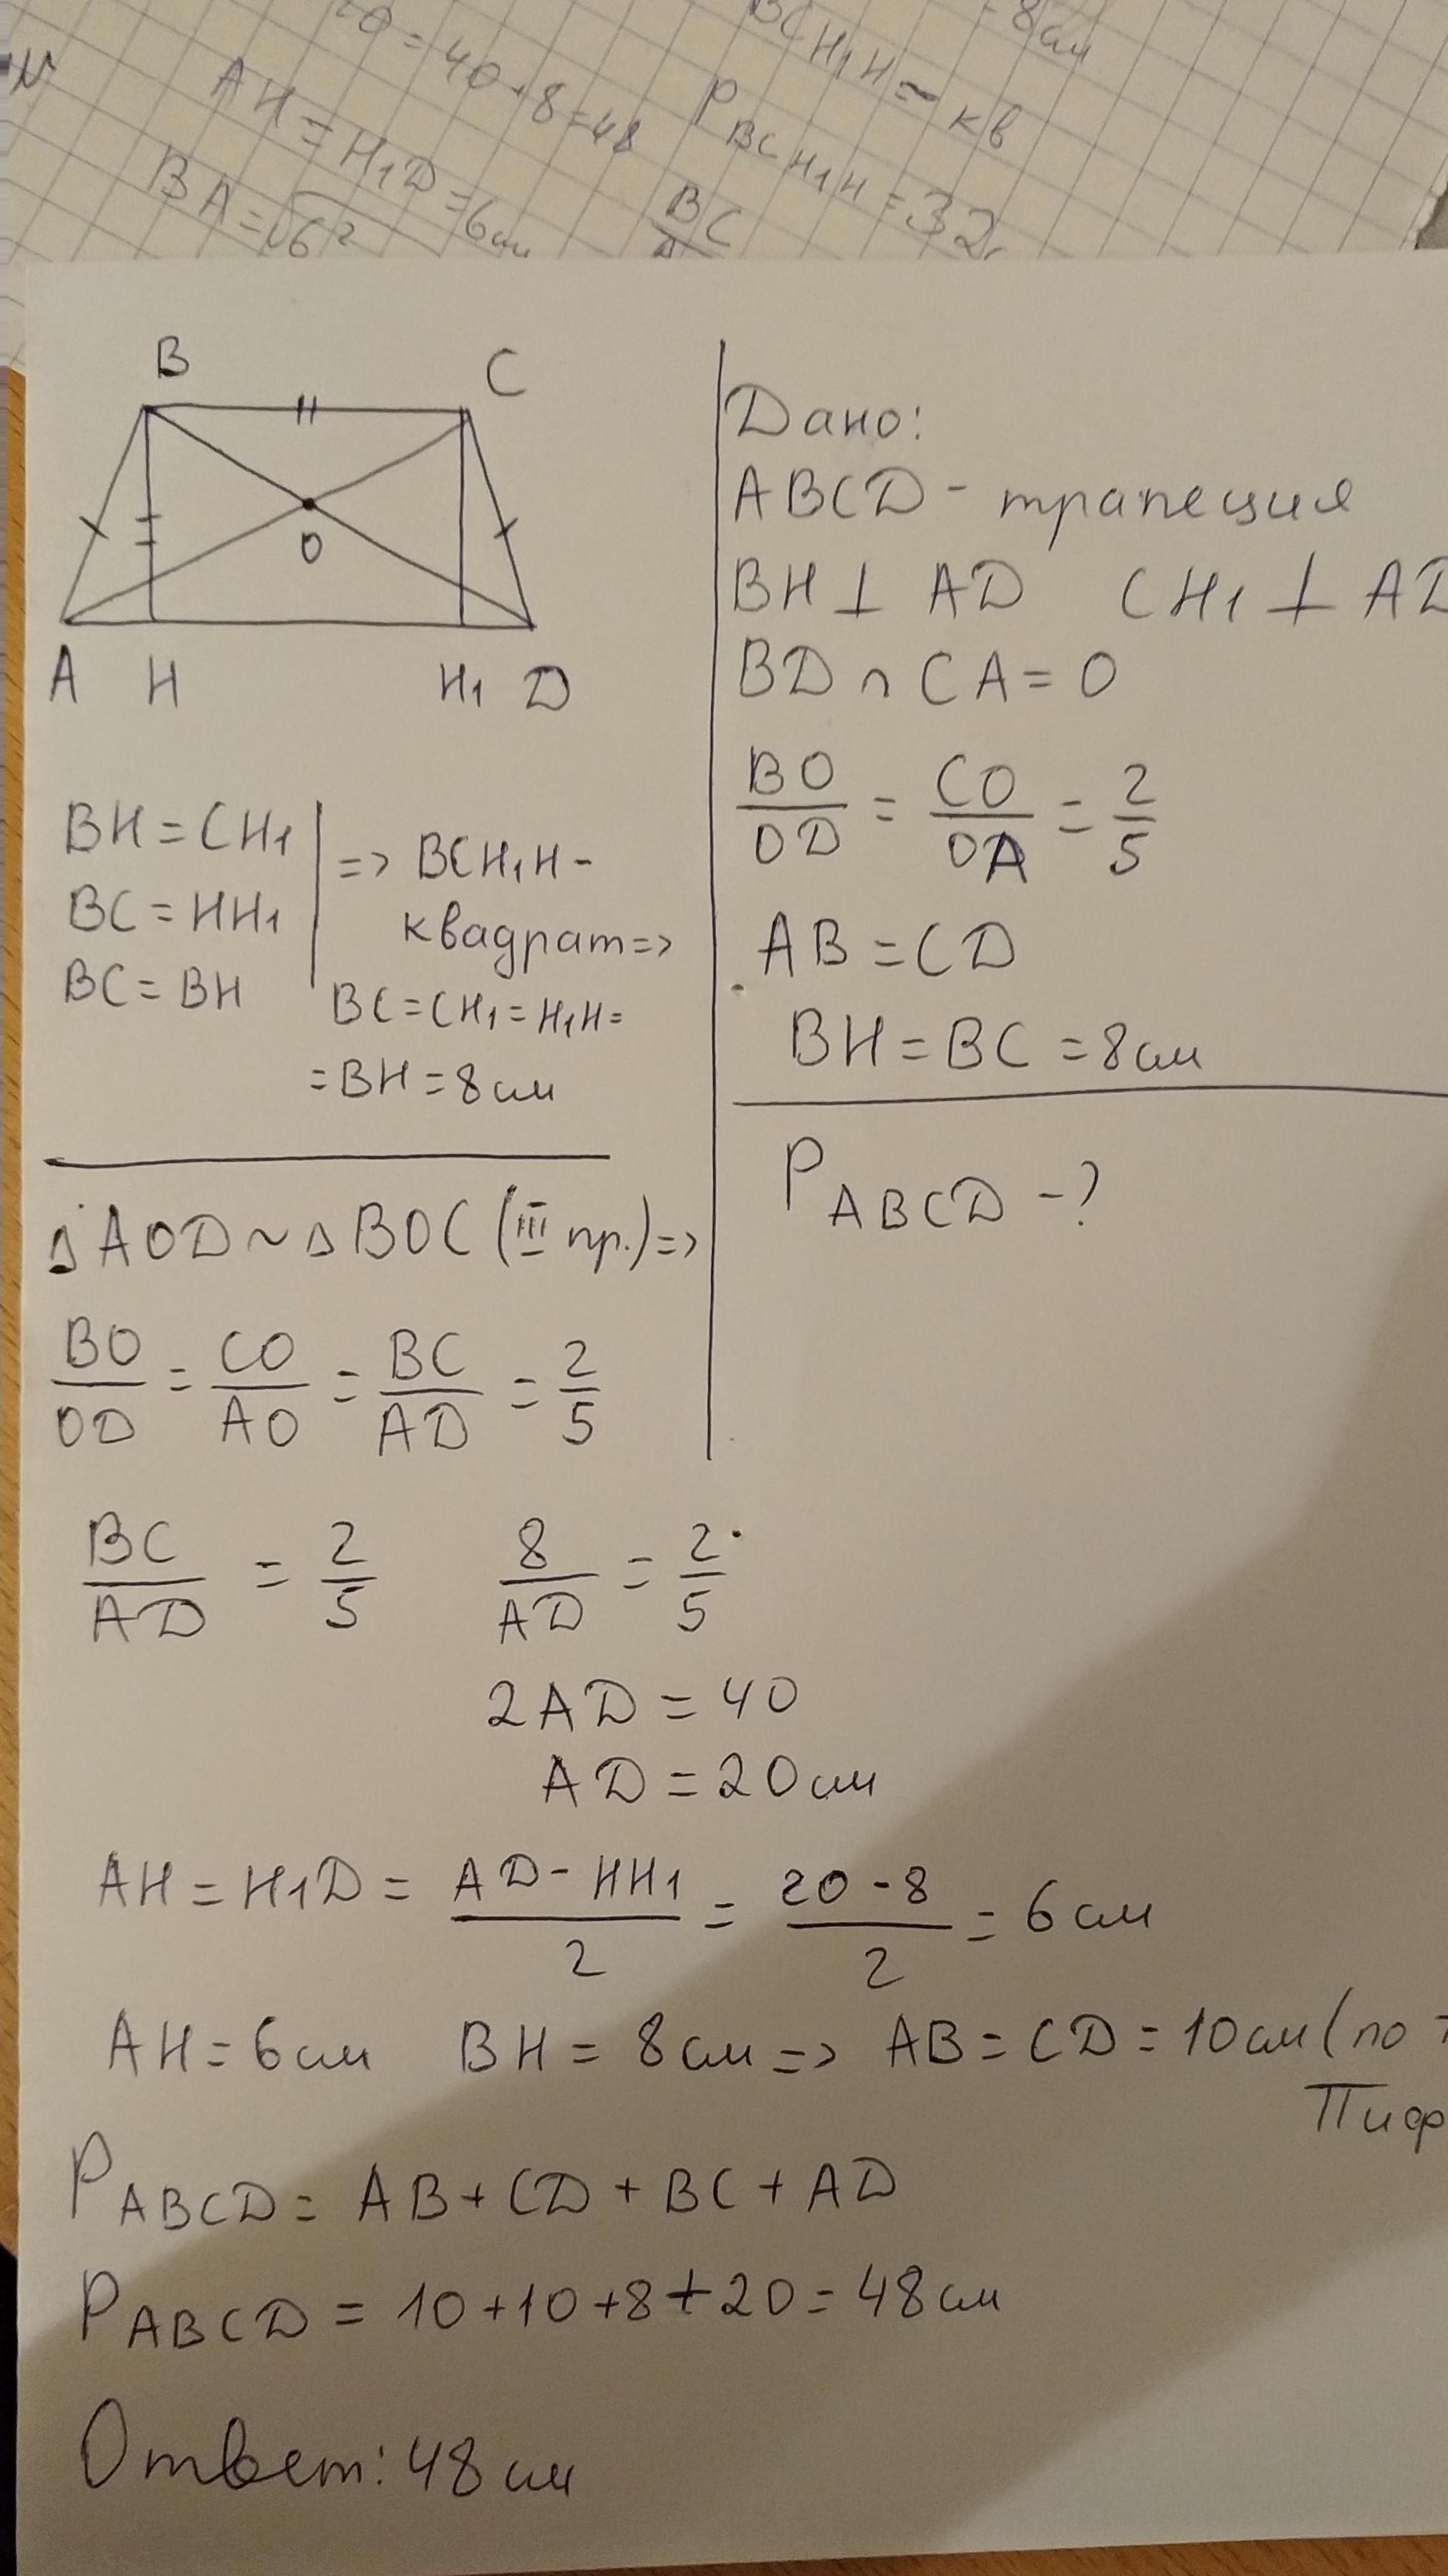 = 40 + 8 = 48
BCH₁H - кв
8 см
AH = H₁D = 6 см
P BCH₁H = 32
BA = √6²
BC
B
C
O
A H H₁ D
Дано:
ABCD - трапеция
BH ⊥ AD CH₁ ⊥ AD
BD ∩ CA = O
BO/OD = CO/OA = 2/5
AB = CD
BH = BC = 8 см
P ABCD - ?
BH = CH₁
BC = HH₁
BC = BH
=> BCH₁H -
квадрат =>
BC = CH₁ = H₁H =
= BH = 8 см
△AOD ~ △BOC (III пр.) =>
BO/OD = CO/AO = BC/AD = 2/5
BC/AD = 2/5 8/AD = 2/5
2AD = 40
AD = 20 см
AH = H₁D = (AD - HH₁)/2 = (20 - 8)/2 = 6 см
AH = 6 см BH = 8 см => AB = CD = 10 см (по
Пиф
P ABCD = AB + CD + BC + AD
P ABCD = 10 + 10 + 8 + 20 = 48 см
Ответ: 48 см